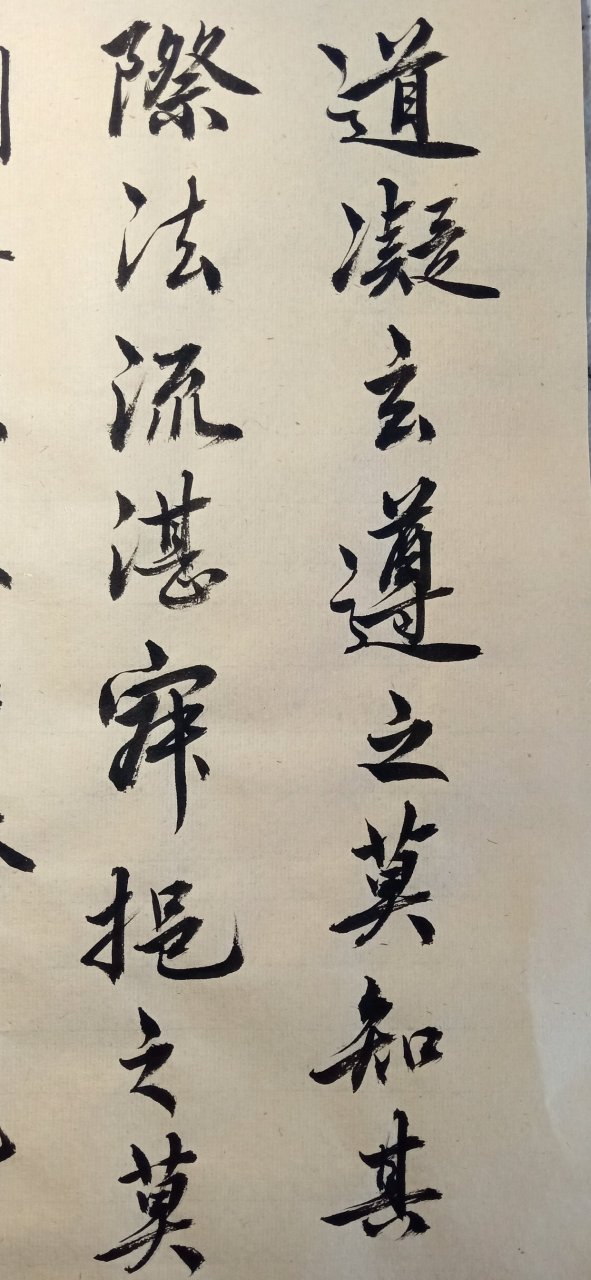 道凝玄遵之莫知其
際法流湛寂挹之莫